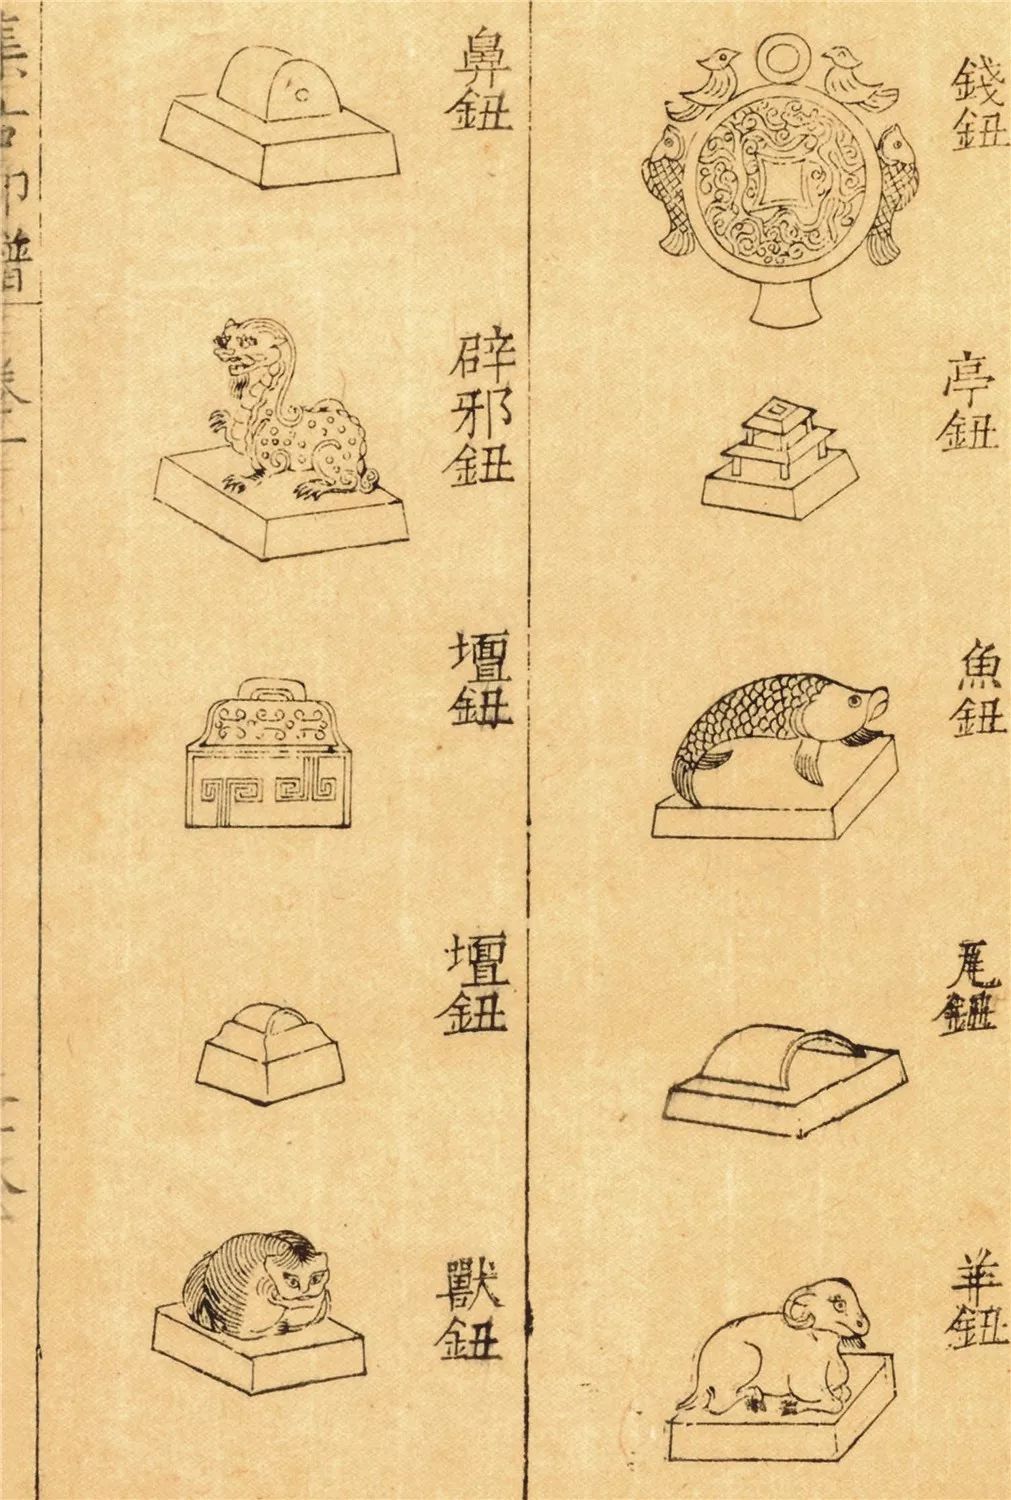 錢鈕
亭鈕
魚鈕
瓦鈕
羊鈕
鼻鈕
辟邪鈕
壇鈕
壇鈕
獸鈕
集古印譜
卷一